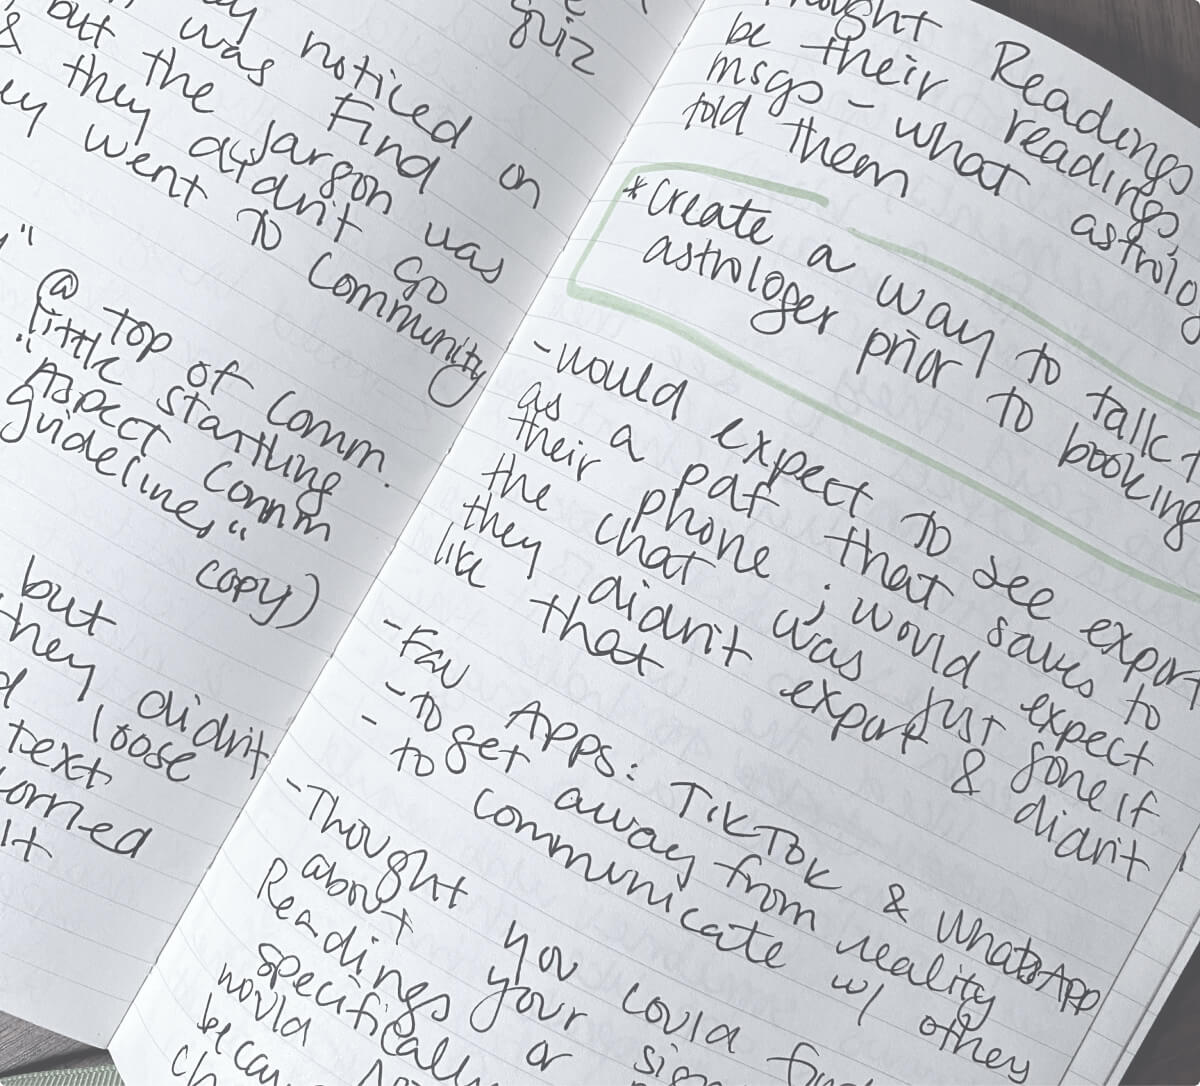 quiz
noticed on
was Find
but the Jargon was
& they didn't go
went to community
"
@ top of comm.
little startling
"Aspect Comm
guidelines"
copy)
but
they didn't
loose
text
It
Readings
be their readings
msgs - what astrolog
told them
*create a way to talk t
astrologer prior to booking
- would expect to see export
as a pdf that saves to
their phone; would expect
the chat was just gone if
they didn't export & didn't
like that
- Fav Apps: TikTok & WhatsApp
- To get away from reality
- to communicate w/ others
- Thought you could
about your sig
Readings or
specifically
would
becau